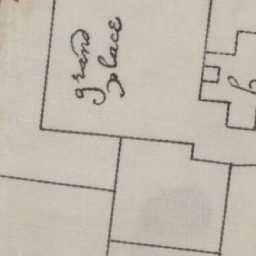 grand
place